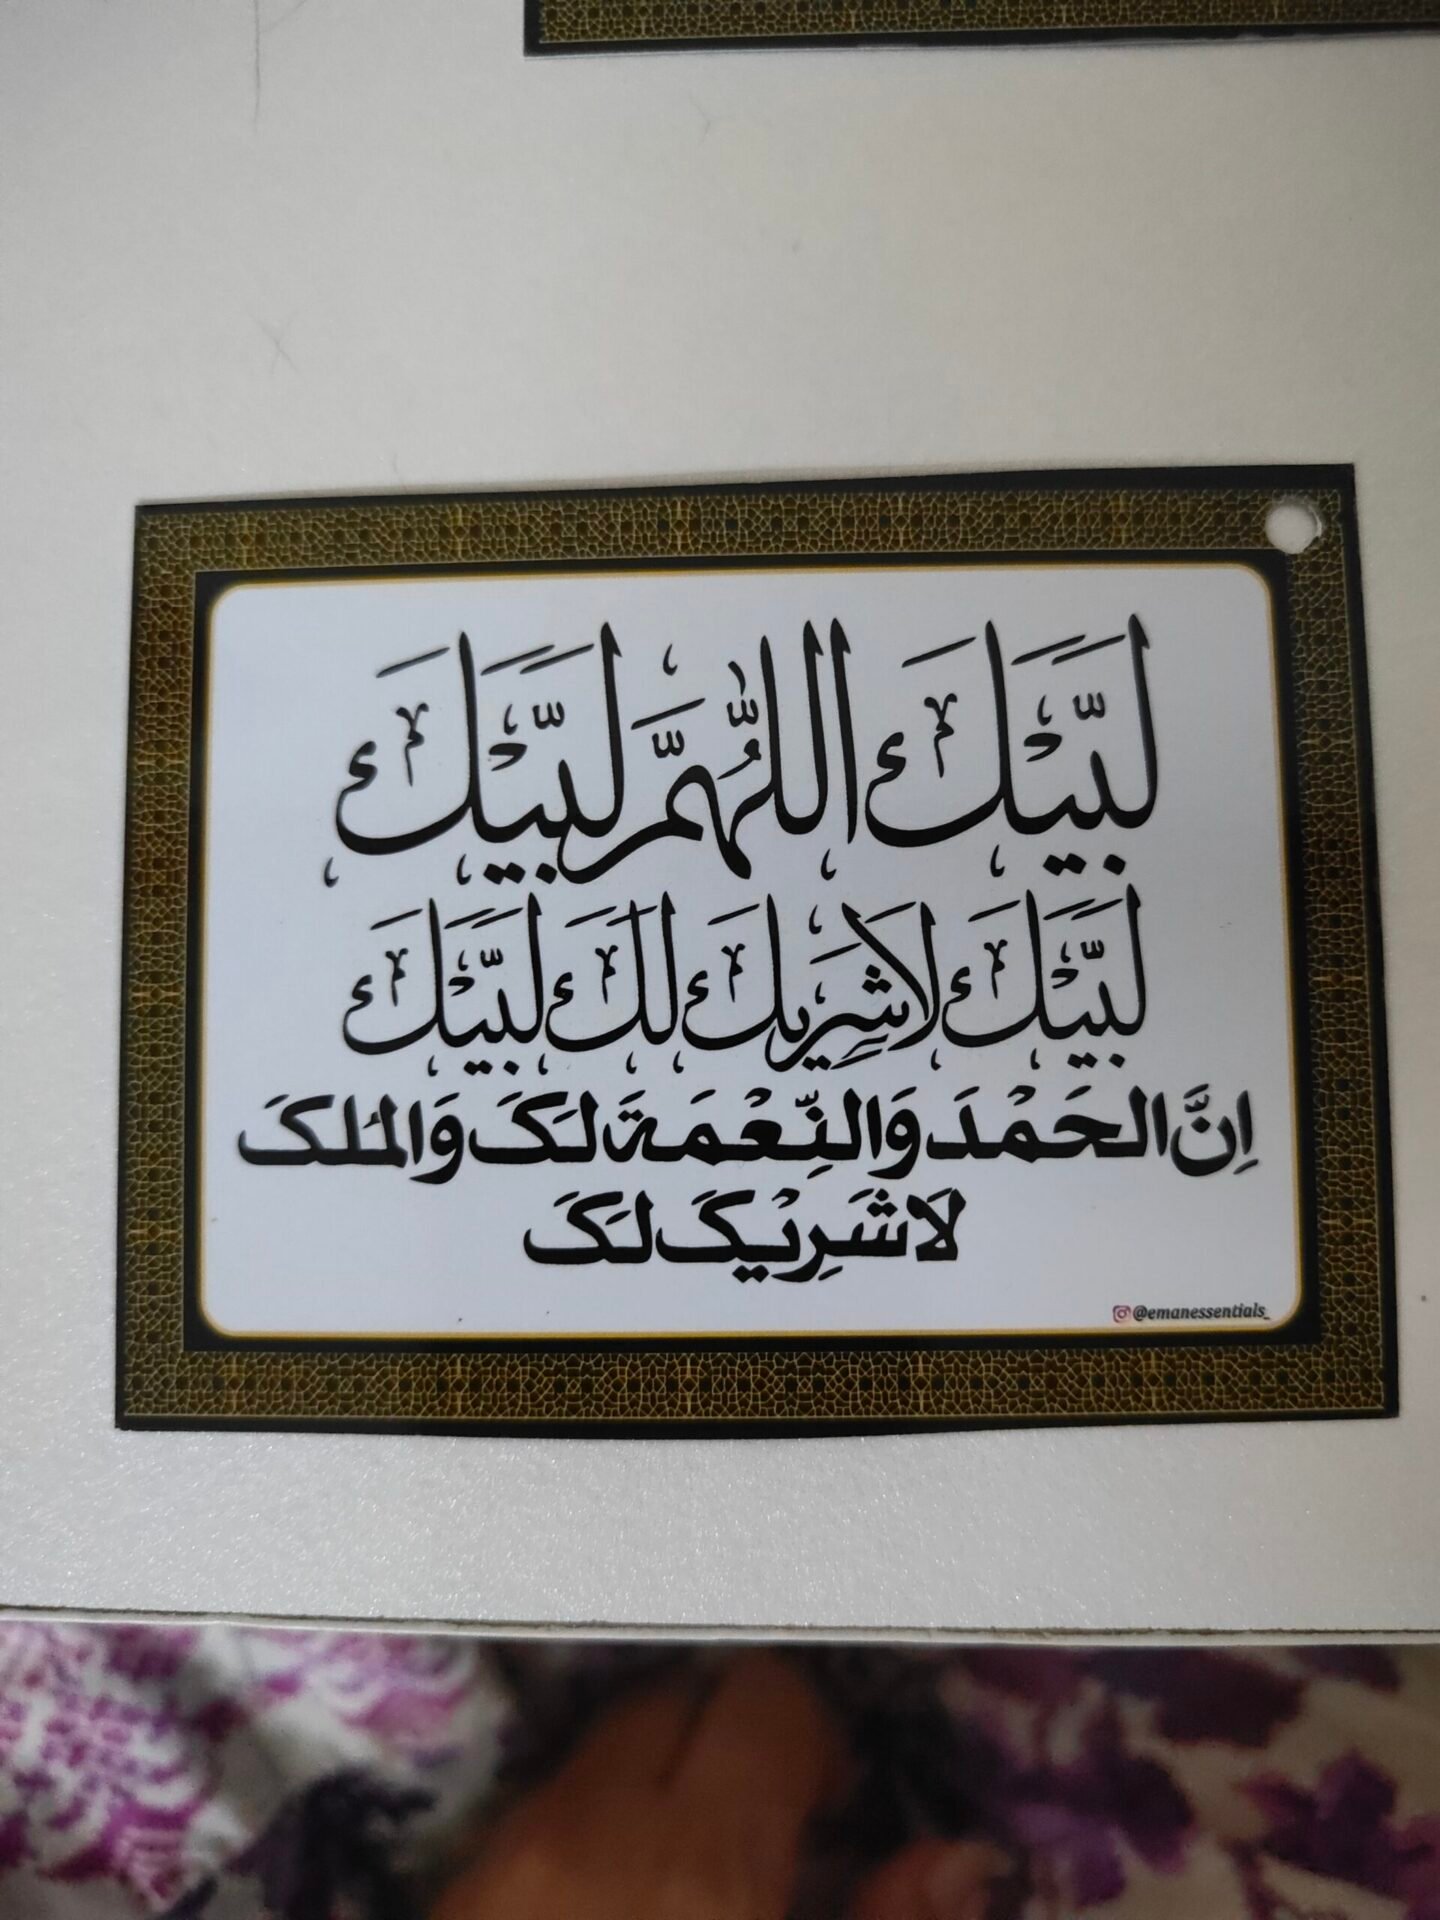 لَبَّيْكَ اللّٰهُمَّ لَبَّيْكَ
لَبَّيْكَ لَا شَرِيكَ لَكَ لَبَّيْكَ
اِنَّ الحَمْدَ وَالنِّعْمَةَ لَکَ وَالمُلکَ
لَا شَرِیْکَ لَکَ
@emanessentials_